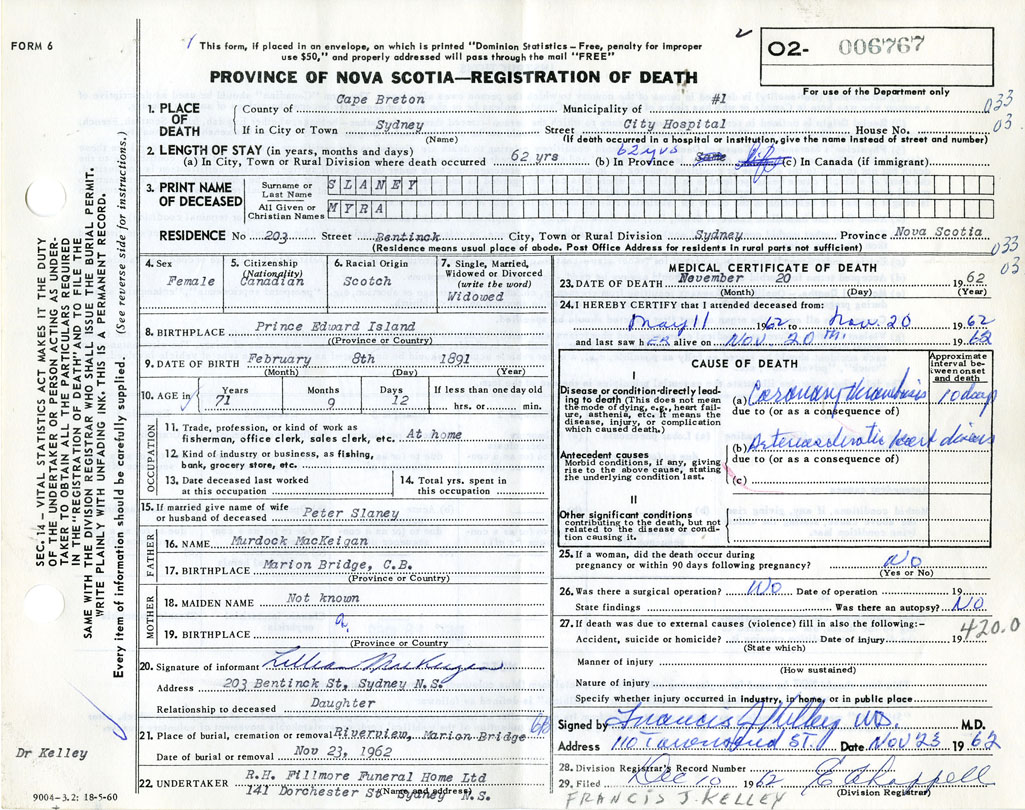 FORM 6
This form, if placed in an envelope, on which is printed "Dominion Statistics – Free, penalty for improper
use $50," and properly addressed will pass through the mail "FREE"
O2- 006767
For use of the Department only
PROVINCE OF NOVA SCOTIA—REGISTRATION OF DEATH
033
03
1. PLACE OF DEATH
County of Cape Breton Municipality of #1
If in City or Town Sydney Street City Hospital House No.
(Name) (If death occurred in a hospital or institution, give the name instead of street and number)
2. LENGTH OF STAY (in years, months and days)
(a) In City, Town or Rural Division where death occurred 62 yrs (b) In Province 62 yrs (c) In Canada (if immigrant)
3. PRINT NAME OF DECEASED
Surname or Last Name SLANEY
All Given or Christian Names MYRA
RESIDENCE No 203 Street Bentinck City, Town or Rural Division Sydney Province Nova Scotia
(Residence means usual place of abode. Post Office Address for residents in rural parts not sufficient)
033
03
4. Sex
Female
5. Citizenship
(Nationality)
Canadian
6. Racial Origin
Scotch
7. Single, Married,
Widowed or Divorced
(write the word)
Widowed
8. BIRTHPLACE Prince Edward Island
(Province or Country)
9. DATE OF BIRTH February 8th 1891
(Month) (Day) (Year)
10. AGE in
Years 71
Months 9
Days 12
If less than one day old
hrs. or min.
OCCUPATION
11. Trade, profession, or kind of work as
fisherman, office clerk, sales clerk, etc. At home
12. Kind of industry or business, as fishing,
bank, grocery store, etc.
13. Date deceased last worked
at this occupation
14. Total yrs. spent in
this occupation
15. If married give name of wife
or husband of deceased Peter Slaney
FATHER
16. NAME Murdock MacKeigan
17. BIRTHPLACE Marion Bridge, C.B.
(Province or Country)
MOTHER
18. MAIDEN NAME Not known
19. BIRTHPLACE
(Province or Country)
20. Signature of informant Lillian MacKenzie
Address 203 Bentinck St, Sydney N.S.
Relationship to deceased Daughter
21. Place of burial, cremation or removal Riverview, Marion Bridge
Date of burial or removal Nov 23, 1962
22. UNDERTAKER R.H. Fillmore Funeral Home Ltd
141 Dorchester St Sydney N.S.
(Name and address)
MEDICAL CERTIFICATE OF DEATH
23. DATE OF DEATH November 20 1962
(Month) (Day) (Year)
24. I HEREBY CERTIFY that I attended deceased from:
May 11 1962 to Nov. 20 1962
and last saw hER alive on NOV. 20 TH. 1962
CAUSE OF DEATH
Approximate
interval be-
tween onset
and death
I
Disease or condition directly lead-
ing to death (This does not mean
the mode of dying, e.g., heart fail-
ure, asthenia, etc. It means the
disease, injury, or complication
which caused death.)
(a) Coronary thrombosis 10 days
due to (or as a consequence of)
(b) Arteriosclerotic heart disease
due to (or as a consequence of)
(c)
Antecedent causes
Morbid conditions, if any, giving
rise to the above cause, stating
the underlying condition last.
II
Other significant conditions
contributing to the death, but not
related to the disease or condi-
tion causing it.
25. If a woman, did the death occur during
pregnancy or within 90 days following pregnancy? NO
(Yes or No)
26. Was there a surgical operation? NO Date of operation 19
State findings Was there an autopsy? NO
27. If death was due to external causes (violence) fill in also the following:—
420.0
Accident, suicide or homicide? Date of injury 19
(State which)
Manner of injury
(How sustained)
Nature of injury
Specify whether injury occurred in industry, in home, or in public place
Signed by Francis J Kelley MD. M.D.
Address 110 Townsend ST. Date NOV 23 1962
28. Division Registrar's Record Number
29. Filed Dec 10 1962
(Division Registrar)
FRANCIS J. KELLEY
SEC. 14 – VITAL STATISTICS ACT MAKES IT THE DUTY
OF THE UNDERTAKER OR PERSON ACTING AS UNDER-
TAKER TO OBTAIN ALL THE PARTICULARS REQUIRED
IN THE "REGISTRATION OF DEATH" AND TO FILE THE
SAME WITH THE DIVISION REGISTRAR WHO SHALL ISSUE THE BURIAL PERMIT.
WRITE PLAINLY WITH UNFADING INK. THIS IS A PERMANENT RECORD.
Every item of information should be carefully supplied. (See reverse side for instructions.)
Dr Kelley
9004-3.2: 18-5-60